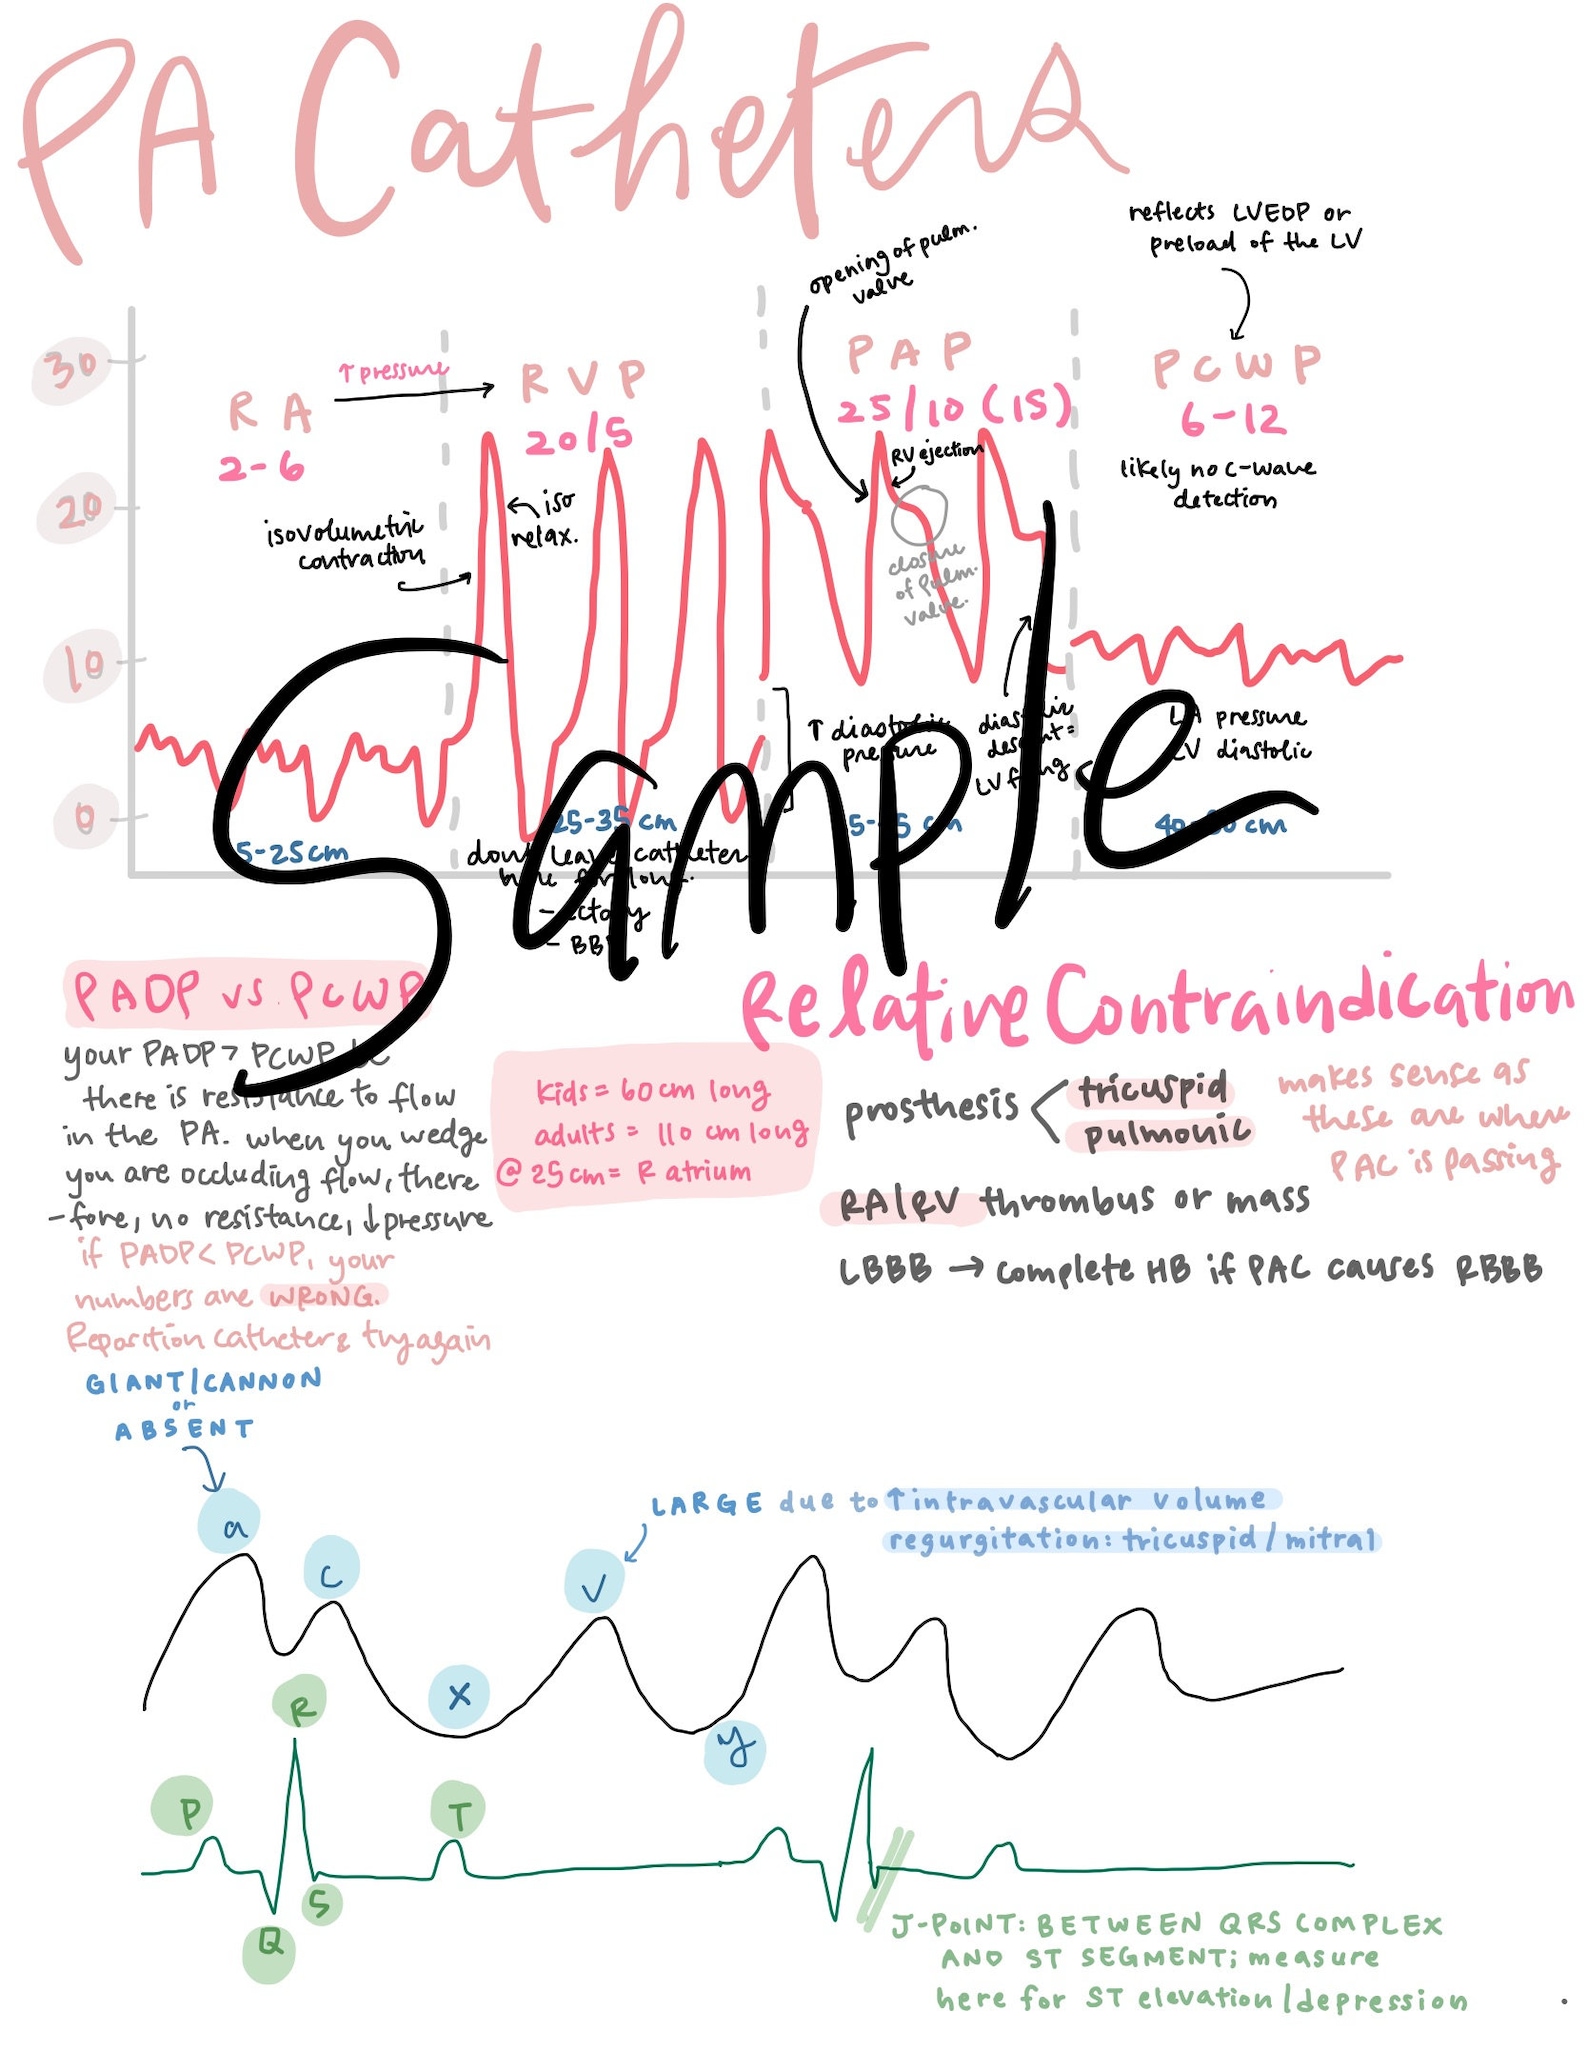 PA Catheters
reflects LVEDP or
preload of the LV
opening of pulm.
valve
30
20
10
0
RA
2-6
↑ pressure
RVP
20/5
PAP
25/10 (15)
PCWP
6-12
likely no c-wave
detection
isovolumetric
contraction
iso
relax.
RV ejection
closure
of pulm.
valve.
↑ diastolic
pressure
diastolic
descent =
LV
pressure
LV diastolic
5-25cm
25-35 cm
cm
cm
don't leave catheter
here for long.
- ectopy
Sample
PADP vs. PCWP
your PADP > PCWP bc
there is resistance to flow
in the PA. when you wedge
you are occluding flow, there
-fore, no resistance, ↓pressure
if PADP < PCWP, your
numbers are WRONG.
Reposition catheter & try again
kids = 60cm long
adults = 110 cm long
@ 25cm = R atrium
Relative Contraindication
prosthesis < tricuspid
pulmonic
makes sense as
these are where
PAC is passing
RA/RV thrombus or mass
LBBB → complete HB if PAC causes RBBB
GIANT/CANNON
or
ABSENT
a
c
v
x
y
LARGE due to ↑intravascular volume
regurgitation: tricuspid/mitral
P
Q
R
S
T
J-POINT: BETWEEN QRS COMPLEX
AND ST SEGMENT; measure
here for ST elevation/depression